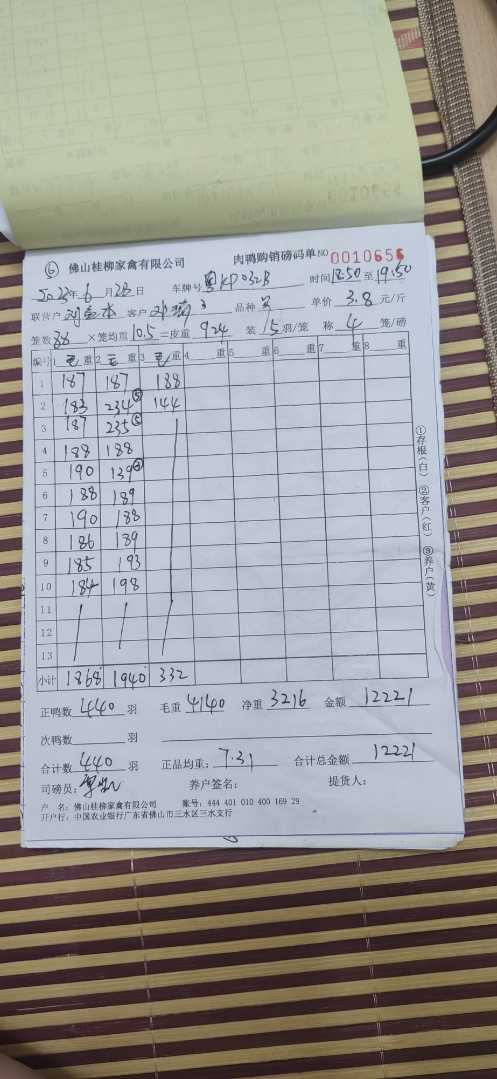 ⑥ 佛山桂柳家禽有限公司 肉鸭购销磅码单 NO 0010656
2023年6月28日 车牌号 粤KP032B 时间 18:50 至 19:50
联营户 客户 邓 品种 单价 3.8 元/斤
笼数 88 ×笼均重 10.5 =皮重 924 装 15 羽/笼 称 4 笼/磅
编号 1 毛 重 2 毛 重 3 毛 重 4 重 5 重 6 重 7 重 8 重
1 187 187 188
2 183 234⑤ 144
3 187 235⑤
4 188 188
5 190 139③
6 188 189
7 190 188
8 186 189
9 185 193
10 184 198
11
12
13
小计 1868 1940 332
正鸭数 440 羽 毛重 4140 净重 3216 金额 12221
次鸭数 羽
合计数 440 羽 正品均重: 7.31 合计总金额 12221
司磅员: 养户签名: 提货人:
户 名: 佛山桂柳家禽有限公司 账号: 444 401 010 400 169 29
开户行: 中国农业银行广东省佛山市三水区三水支行
①存根(白) ②客户(红) ③养户(黄)